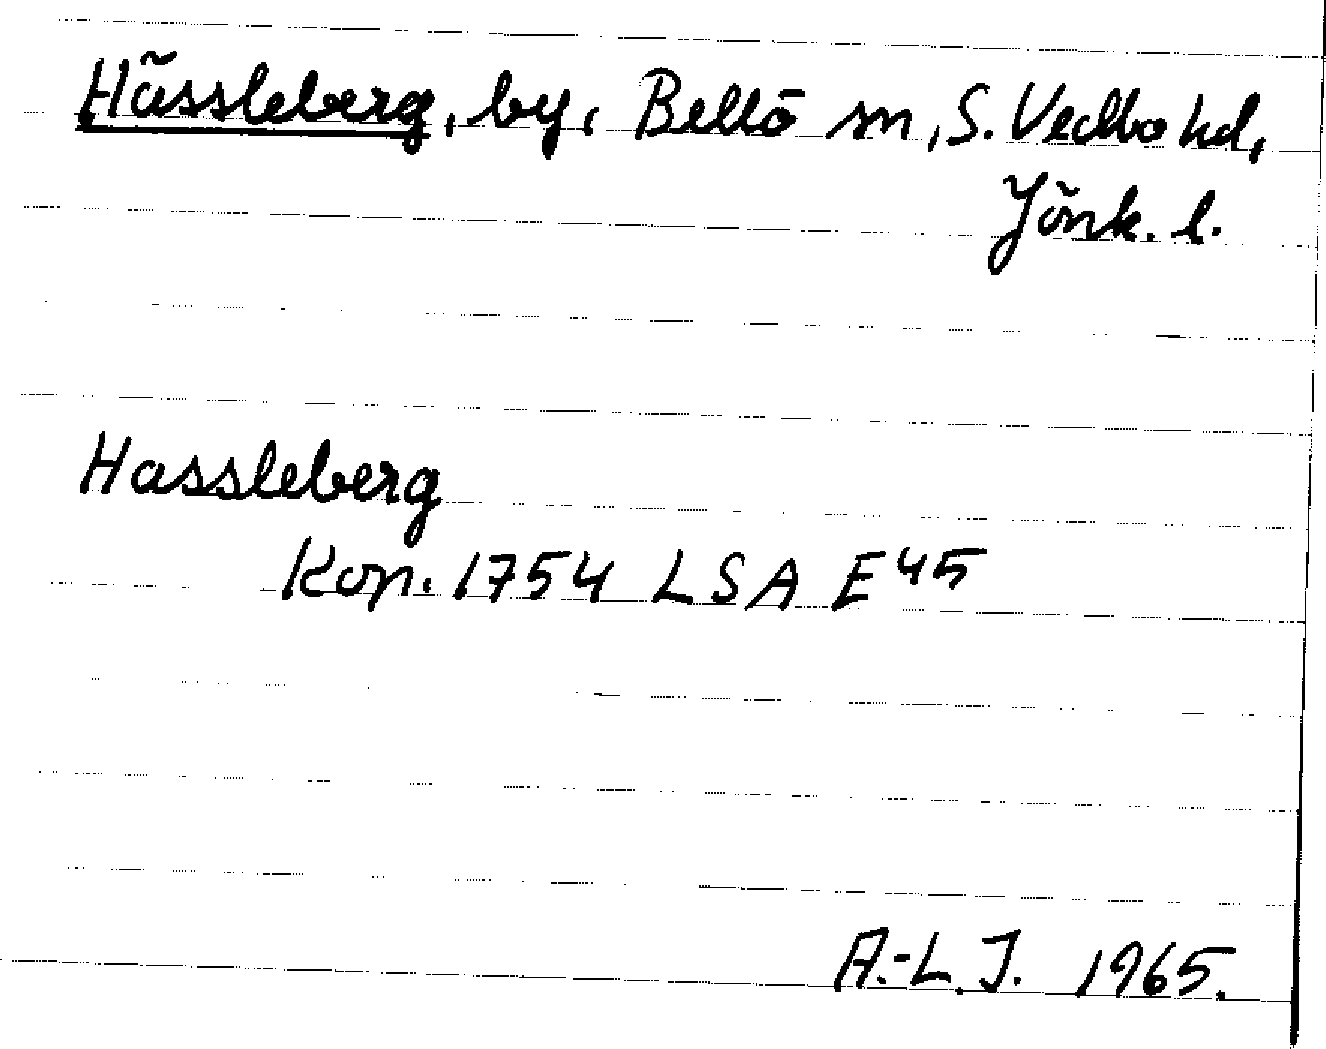 Hässleberg, by, Bellö sn, S. Vedbo hd,
Jönk. l.
Hassleberg
Kop. 1754 LSA E45
A.-L. J. 1965.